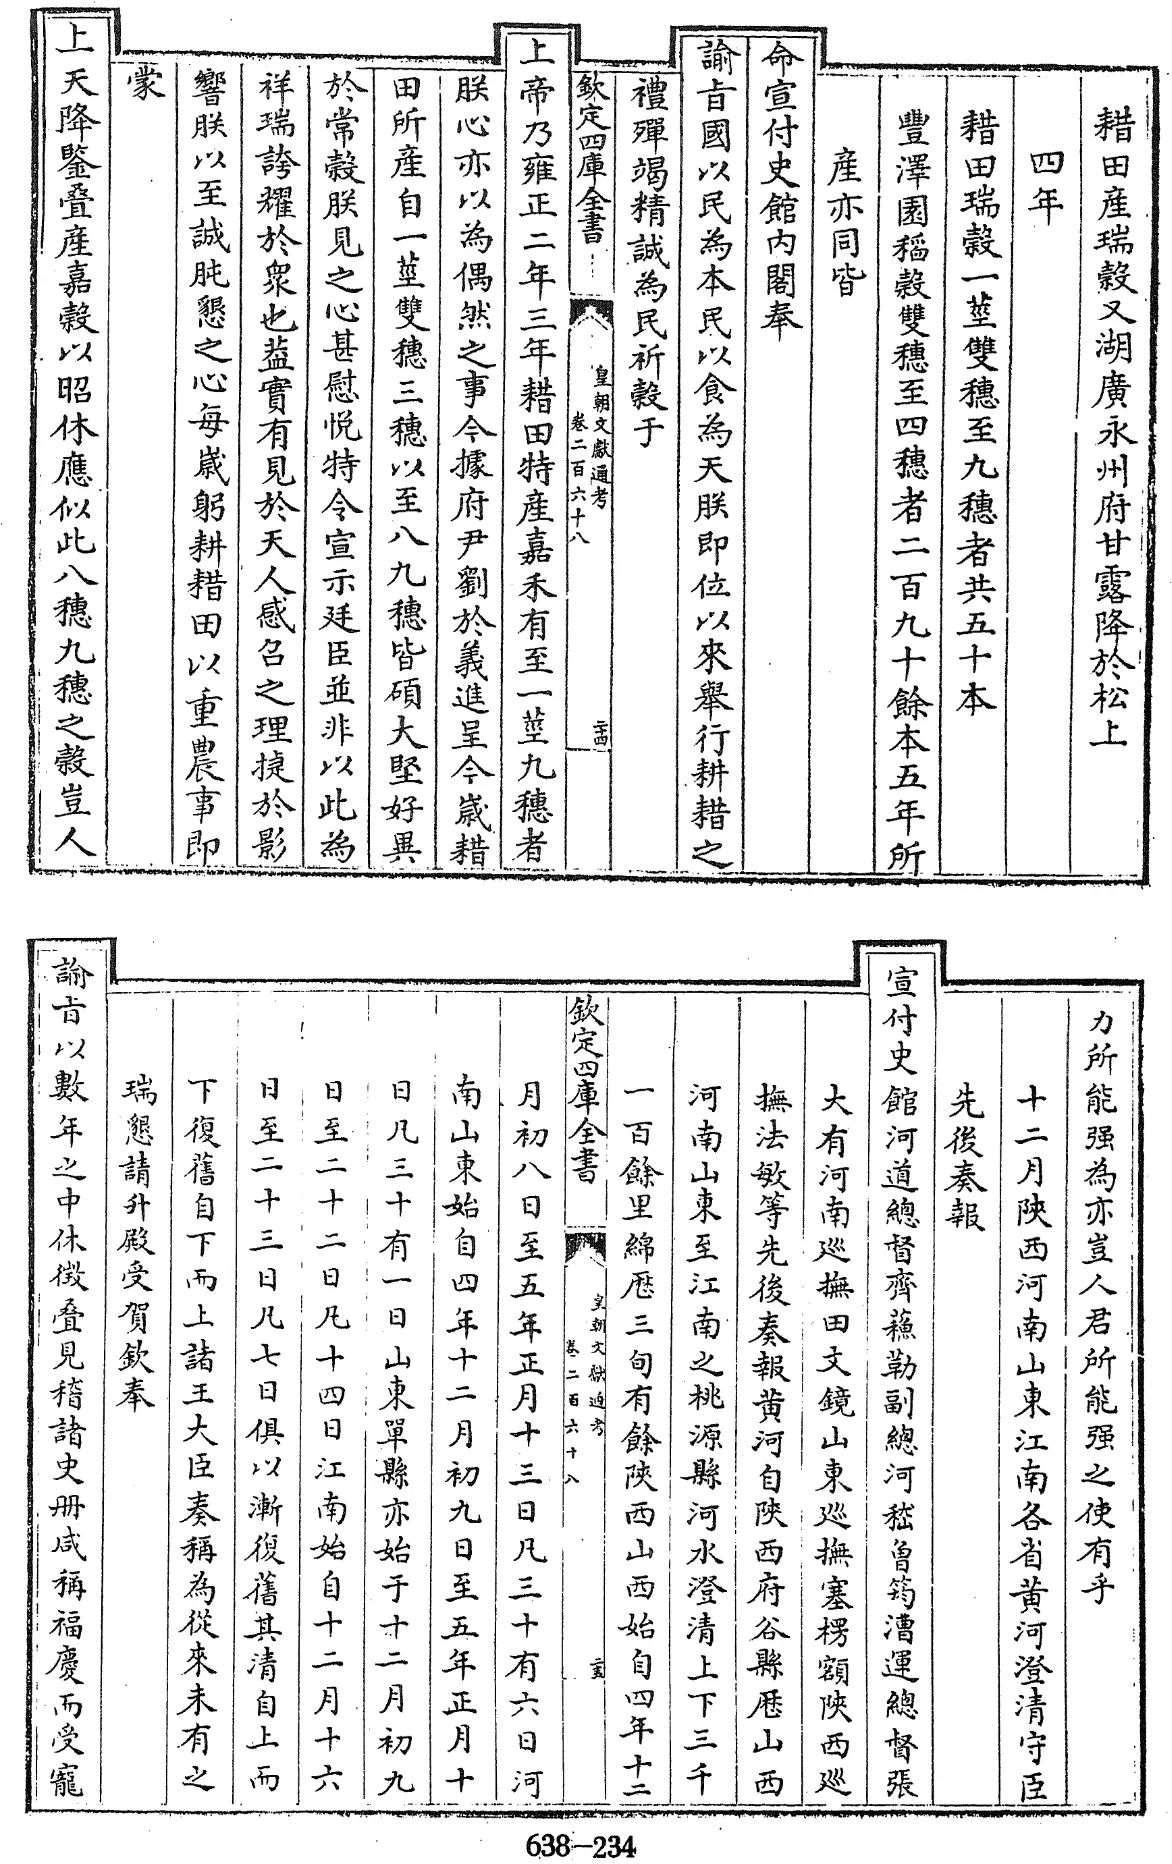 耤田産瑞穀又湖廣永州府甘露降於松上
四年
耤田瑞穀一莖雙穗至九穗者共五十本
豐澤園稻穀雙穗至四穗者二百九十餘本五年所
産亦同皆
命宣付史館内閣奉
諭旨國以民為本民以食為天朕即位以來舉行耕耤之
禮殫竭精誠為民祈穀于
欽定四庫全書
皇朝文獻通考
卷二百六十八
二十四
上帝乃雍正二年三年耤田特産嘉禾有至一莖九穗者
朕心亦以為偶然之事今據府尹劉於義進呈今嵗耤
田所産自一莖雙穗三穗以至八九穗皆碩大堅好異
於常穀朕見之心甚慰悅特令宣示廷臣並非以此為
祥瑞誇耀於衆也葢實有見於天人感召之理捷於影
響朕以至誠肫懇之心每嵗躬耕耤田以重農事即
蒙
上天降鑒疊産嘉穀以昭休應似此八穗九穗之穀豈人
力所能强為亦豈人君所能强之使有乎
十二月陜西河南山東江南各省黄河澄清守臣
先後奏報
宣付史館河道總督齊蘇勒副總河嵇曽筠漕運總督張
大有河南巡撫田文鏡山東巡撫塞楞額陜西巡
撫法敏等先後奏報黄河自陜西府谷縣歴山西
河南山東至江南之桃源縣河水澄清上下三千
一百餘里綿歴三旬有餘陜西山西始自四年十二
欽定四庫全書
皇朝文獻通考
卷二百六十八
二十五
月初八日至五年正月十三日凡三十有六日河
南山東始自四年十二月初九日至五年正月十
日凡三十有一日山東單縣亦始于十二月初九
日至二十二日凡十四日江南始自十二月十六
日至二十三日凡七日俱以漸復舊其清自上而
下復舊自下而上諸王大臣奏稱為從來未有之
瑞懇請升殿受賀欽奉
諭旨以數年之中休徴疊見稽諸史册咸稱福慶而受寵
638-234